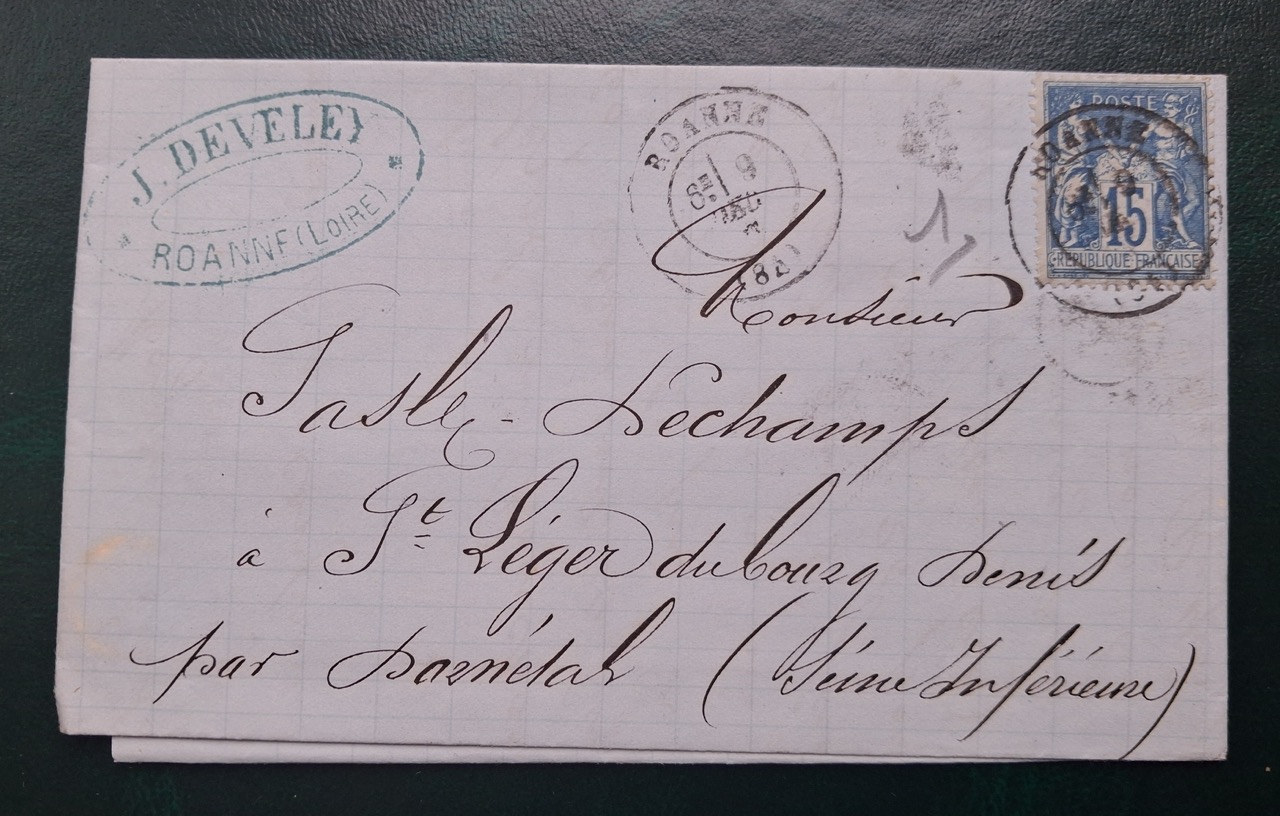 J. DEVELEY
ROANNE (LOIRE)
ROANNE
6E / 9
(84)
POSTE
ROANNE
15
REPUBLIQUE FRANÇAISE
Monsieur
Gasle - Déchamps
à St Léger du bourg Denis
par Darnétal (Seine Inférieure)